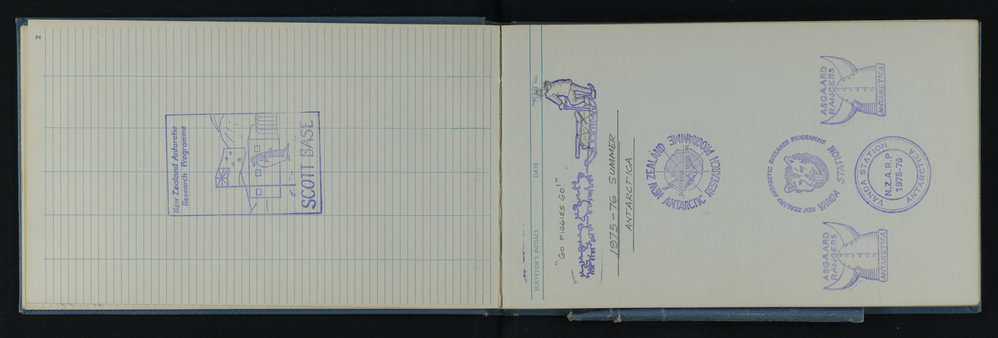 2
New Zealand Antarctic
Research Programme
SCOTT BASE
PLAN No.
DATE
SURVEYOR'S INITIALS
"GO PIGGIES GO!"
1975-76 SUMMER
ANTARCTICA
NEW ZEALAND
ANTARCTIC RESEARCH PROGRAMME
NEW ZEALAND ANTARCTIC RESEARCH PROGRAMME
VANDA STATION
ASGAARD
RANGERS
ANTARCTICA
VANDA STATION
N.Z.A.R.P
1975-76
ANTARCTICA
ASGAARD
RANGERS
ANTARCTICA